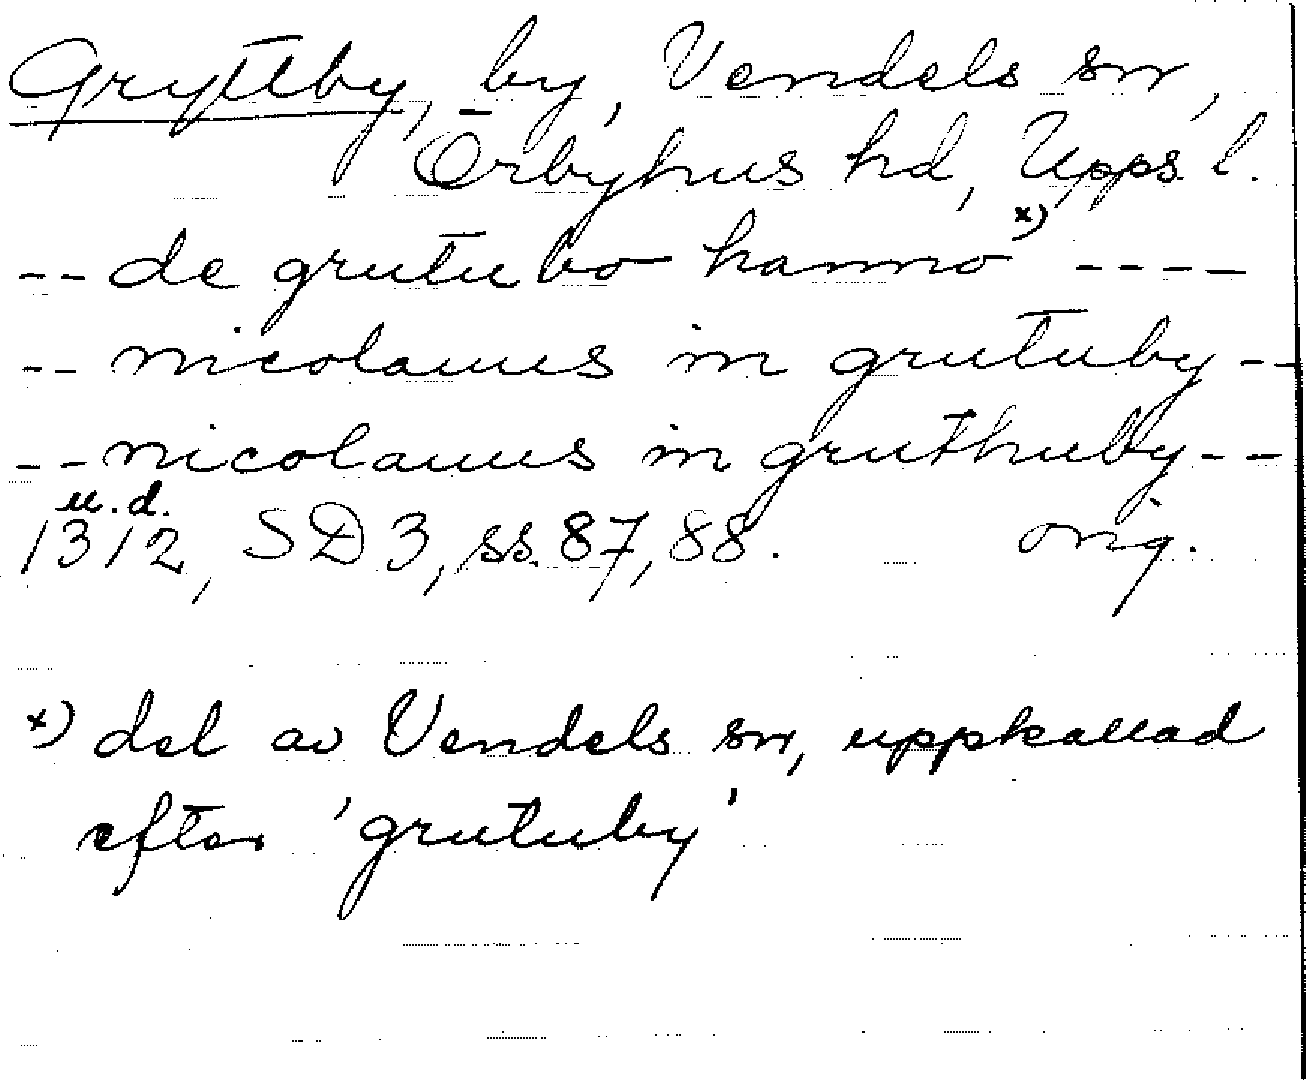 Grytby, by, Vendels sn,
Örbyhus hd, Upps. l.
-- de grutubo hamno x) ----
-- nicolauus in grutuby --
-- nicolauus in gruthuby --
u.d.
1312, SD 3, ss. 87, 88. orig.
x) del av Vendels sn, uppkallad
efter 'grutuby'